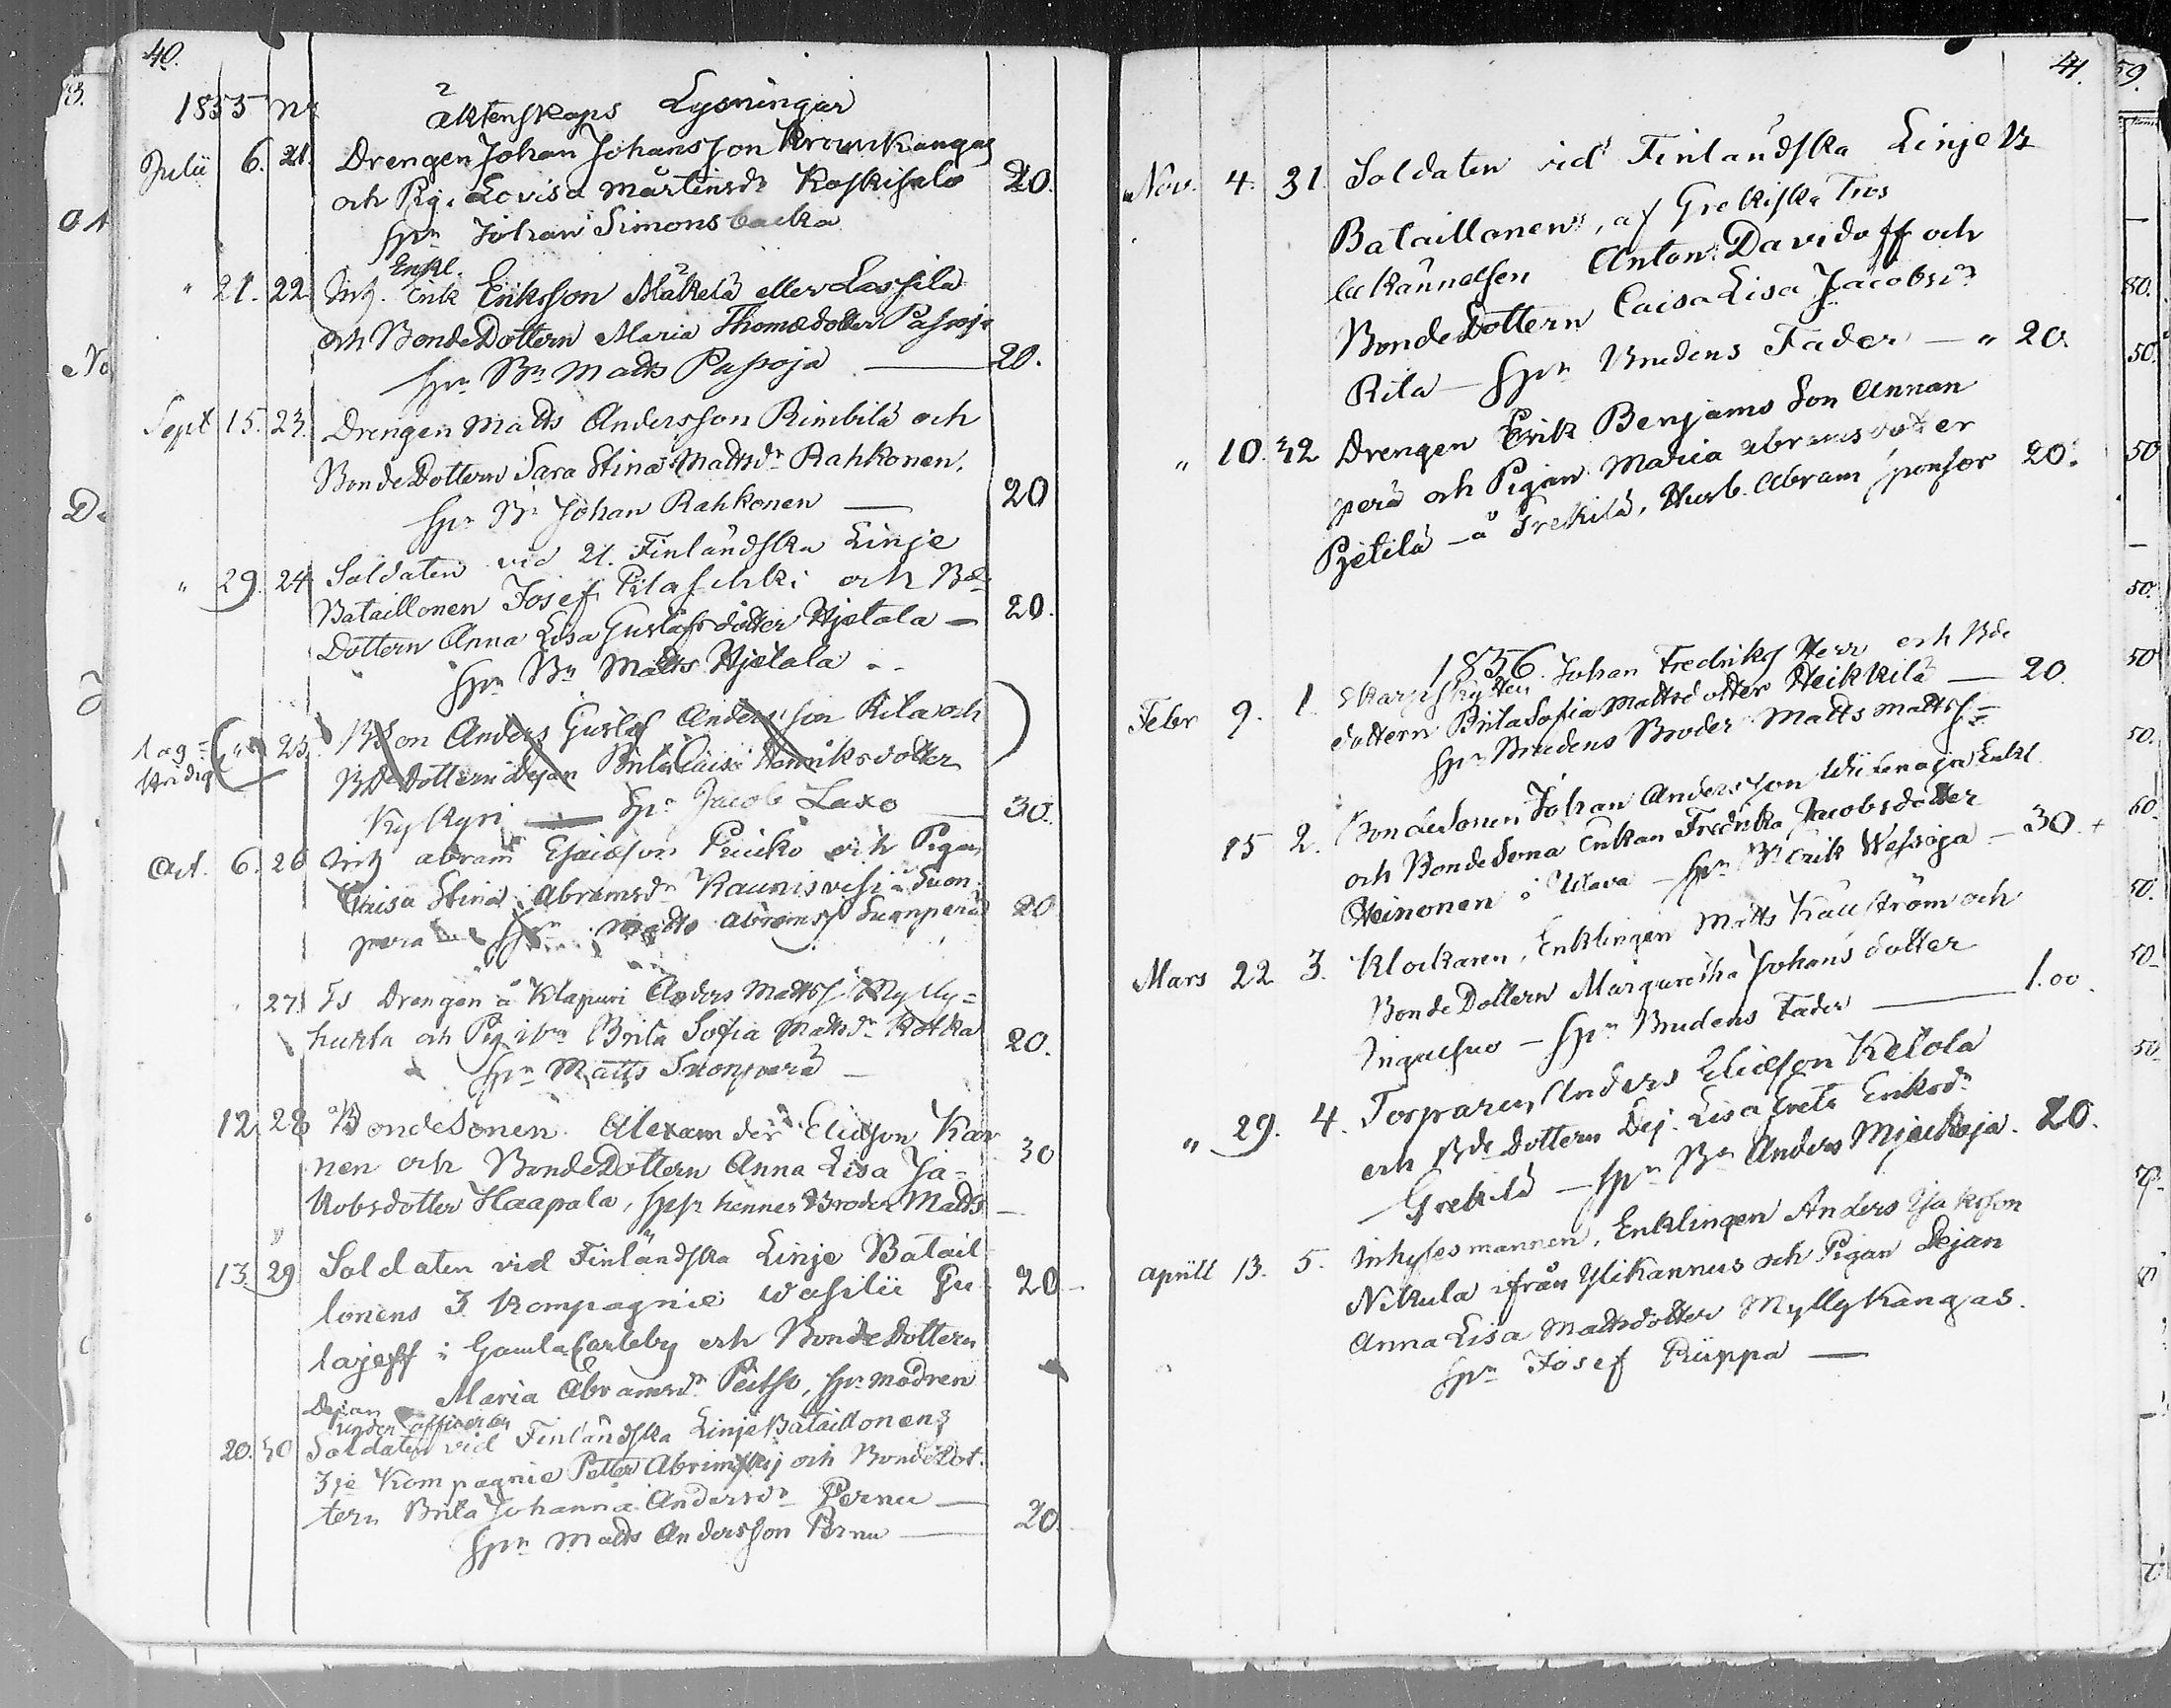 40.
1855 nr äktenskaps Lysningar
Julii 6. 21. Drengen Johan Johansson
och Pig. Lovisa Mårtensdr Koskisalo 20.
Spn Johan Simonsbacka
Enkl.
" 21. 22. Inh. Erik Eriksson Mäkelä eller Lassila
och BondeDottern Maria Thomædotter Passoja
Spn Bn Matts Passoja — 20.
Sept 15. 23. Drengen Matts Andersson Rimbilä och
BondeDottern Sara Stina Mattsdr Rahkonen.
Spn Bn Johan Rahkonen — 20
" 29. 24 Soldaten vid 21. Finländska Linje
Bataillonen Josef och Bde
Dottern Anna Lisa Gustafsdotter Hjetala — 20.
Spn Bn Matts Hjetala
25. BSon Anders Gustaf Andersson Rita och
BdeDottern Dejan Brita Caisa Henriksdotter
Kykyri — Spn Jacob Laxo 30.
Oct. 6. 26 Inh abram Esaiesson och Pigan
Caisa Stina Abramsdr Kaunisvesi å Suon-
pera — Spn Matts abramss Suonperä 20
27. Ts Drengen å Klapuri Anders Mattss Mylly=
hukta och Pig Brita Sofia Mattsdr Kotka 20.
Spn Matts Suonperä —
12. 28 Bondesonen Alexander Eliesson Kar
nen och BondeDottern Anna Lisa Ja= 30
kobsdotter Haapala, hennes Broder Matts —
13. 29 Soldaten vid Finländska Linje Batail
lonens 3 Kompagnie Wasilii Gu- 20 —
lajeff i Gamla Carleby och BondeDottern
Dejan Maria Abramsdr Peitso, Spn modren
Under officeren
20. 30 Soldaten vid Finländska LinjeBataillonens
3je Kompagnie Petter och BondeDot-
tern Brita Johanna Andersdr Pernu —
Spn Matts Andersson Pernu — 20.
41.
Nov. 4. 31. Soldaten vid Finländska Linje
Bataillonen, af Grekiska Tros
bekännelsen Anton Davidoff och
BondeDottern Caisa Lisa Jacobsdr
Rita — Spn Brudens Fader — " 20.
" 10. 32 Drengen Erik Benjamsson Annan
perä och Pigan Maria abramsdotter
Pjetilä — å Trekilä, Husb. Abram sponsor 20.
1856.
Febr 9. 1. Skarpskytten Johan Fredrik Herr och Bde
dottern Brita Sofia Mattsdotter Heikkilä — 20.
Spn Brudens Broder Matts Mattss —
15 2. Bondesonen Johan Andersson Enkl
och BondeSona Enkan Fredrika Jacobsdotter
Heinonen i Ulava — Spn Bn Erik Wessoja — 30. +
Mars 22 3. Klockaren, Enklingen Matts Källström och
BondeDottern Margaretha Johansdotter
— Spn Brudens Fader — 1.00.
" 29. 4. Torparen Anders Eliesson Ketola
och Bde dottern Dej. Lisa Greta Eriksdr
Grekilä — Spn Bn Anders Mjackoja. 20.
Aprill 13. 5. Inhysesmannen, Enklingen Anders Isaksson
Nikula ifrån Ylikannus och Pigan Dejan
Anna Lisa Mattsdotter Myllykangas.
Spn Josef Piippa —